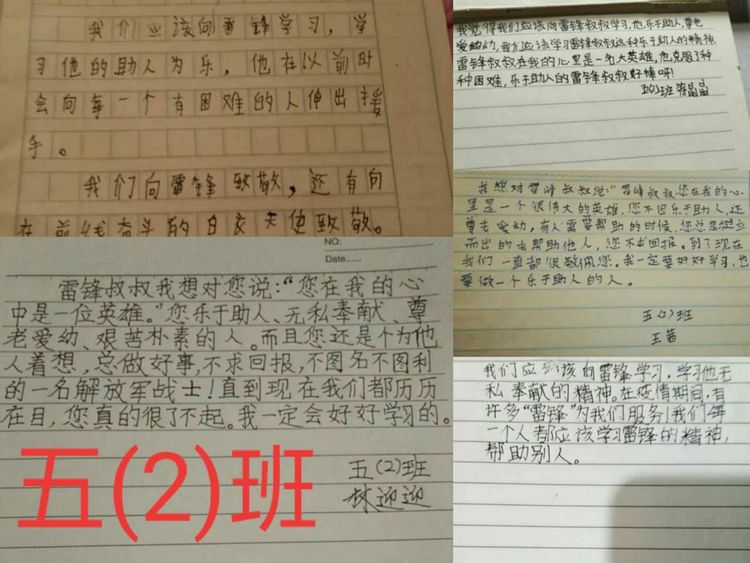 我们应该向雷锋学习，学
习他的助人为乐，他在以前时
会向每一个有困难的人伸出援
手。
我们向雷锋致敬，还有向
在前线奋斗的白衣天使致敬。
NO:
Date......
雷锋叔叔我想对您说：“您在我的心
中是一位英雄。”您乐于助人、无私奉献、尊
老爱幼、艰苦朴素的人。而且您还是个为他
人着想，总做好事，不求回报，不图名不图利
的一名解放军战士！直到现在我们都历历
在目，您真的很了不起。我一定会好好学习的。
五(2)班
林迎迎
五(2)班
我觉得我们应该向雷锋叔叔学习，他乐于助人，尊老
爱幼，我们应该学习雷锋叔叔这种乐于助人的精神，
雷锋叔叔在我的心里是一名大英雄，他克服了种
种困难，乐于助人的雷锋叔叔好棒呀！
五(2)班
我想对雷峰叔叔说：“雷峰叔叔您在我的心
里是一个很伟大的英雄，您不但乐于助人，还
尊老爱幼，有人需要帮助的时候，您总是挺立
而出的去帮助他人，您不求回报。到了现在
我们一直都很敬佩您。我一定要好好学习，也
要做一个乐于助人的人。
五(2)班
王茜
我们应该向雷锋学习。学习他无
私奉献的精神。在疫情期间，有
许多“雷锋”为我们服务！我们每
一个人都应该学习雷锋的精神，
帮助别人。